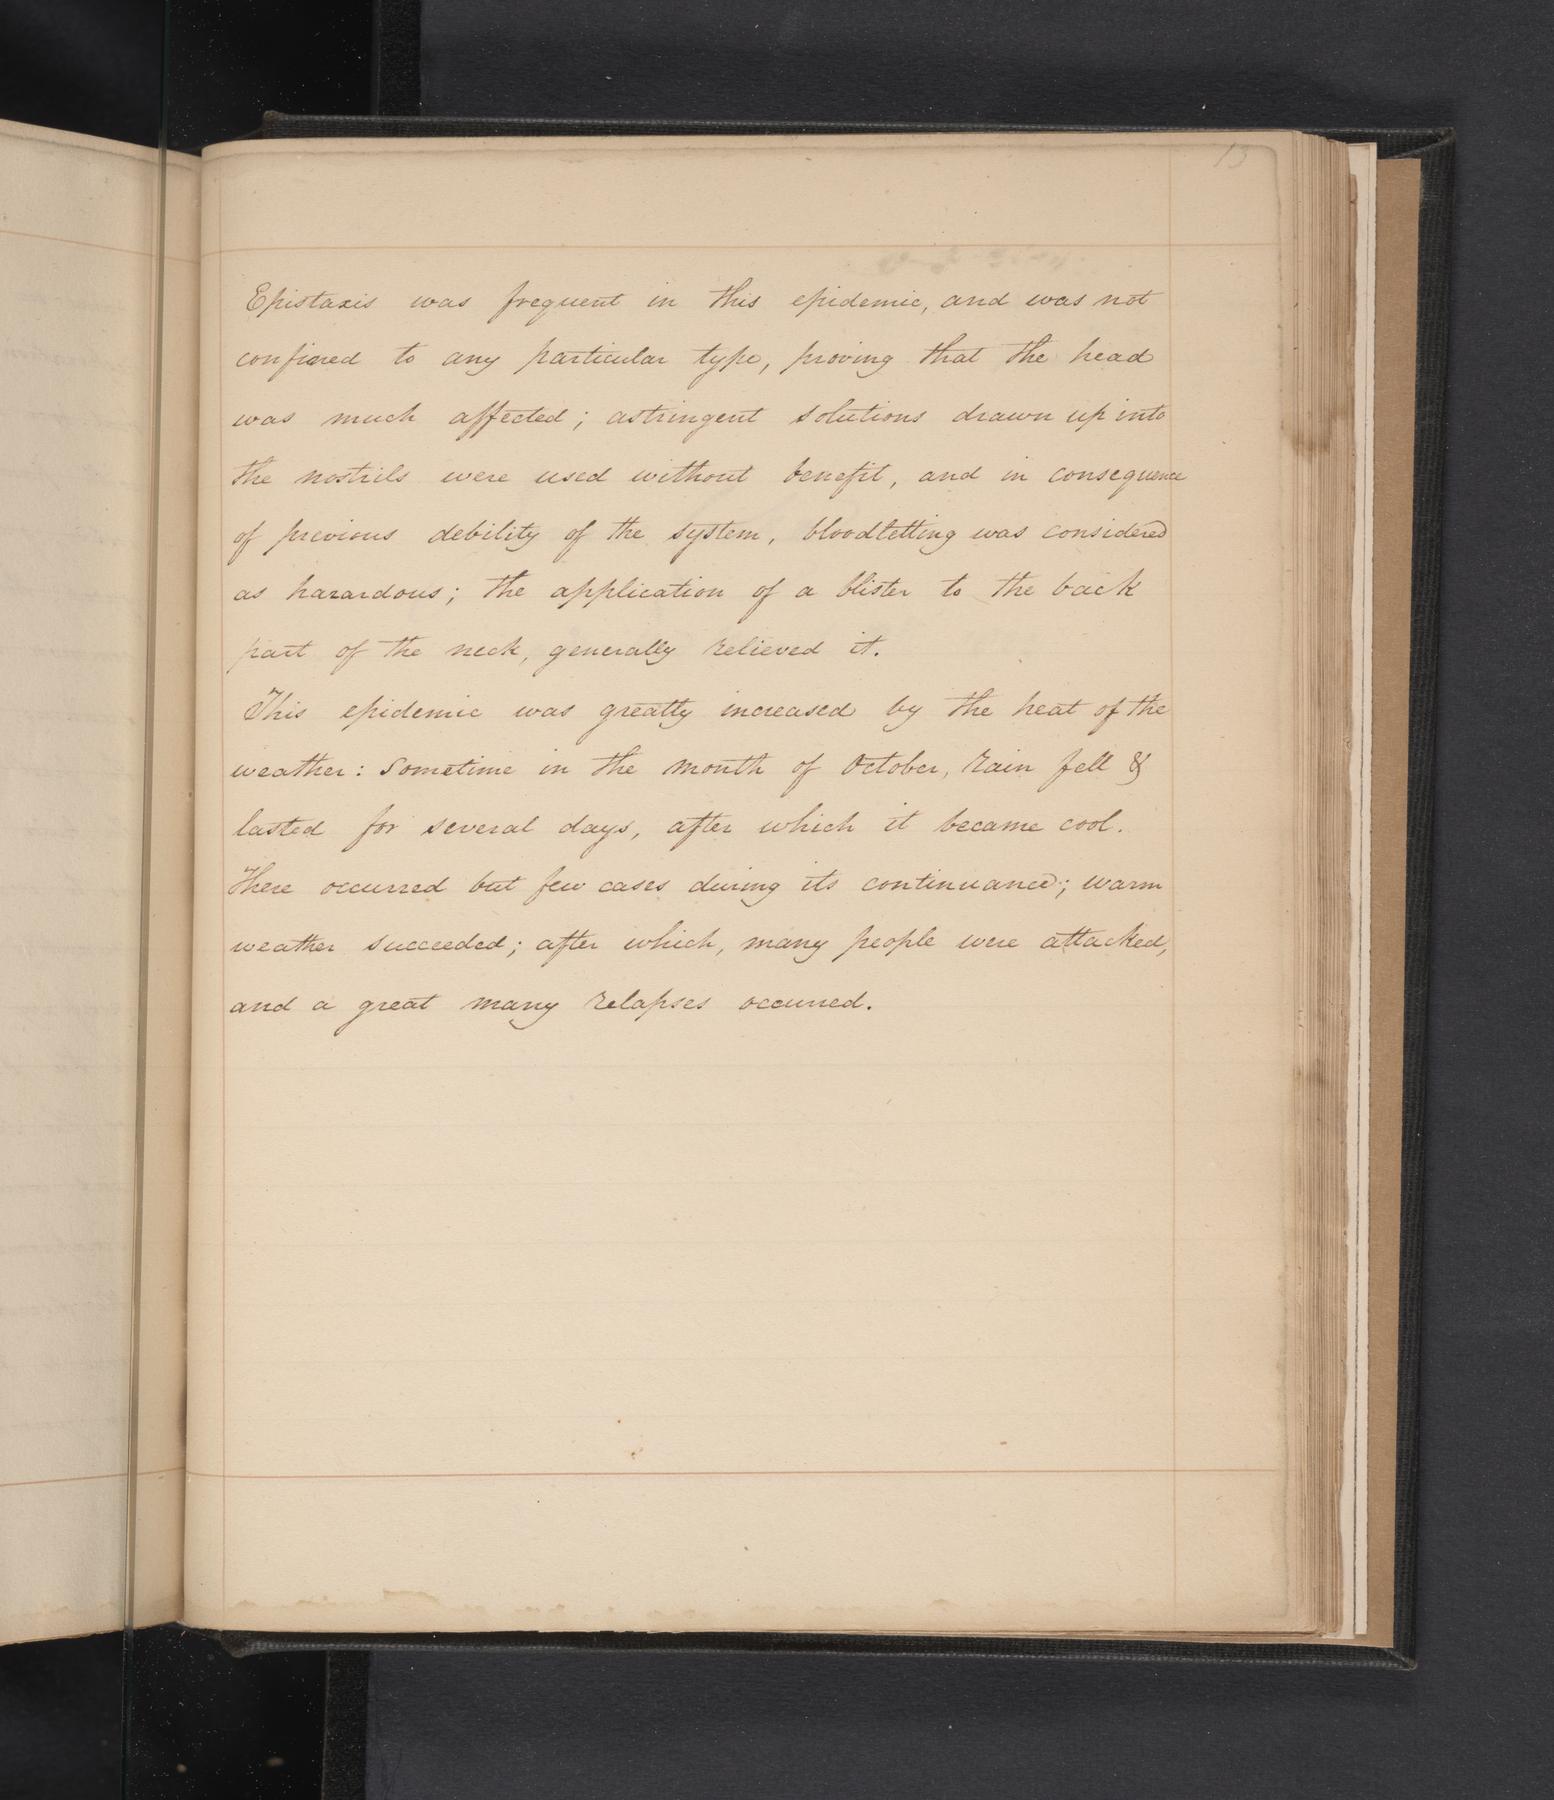 13
Epistaxis was frequent in this epidemic, and was not
confined to any particular type, proving that the head
was much affected; astringent solutions drawn up into
the nostrils were used without benefit, and in consequence
of previous debility of the system, bloodletting was considered
as hazardous; the application of a blister to the back
part of the neck, generally relieved it.
This epidemic was greatly increased by the heat of the
weather: sometime in the month of October, rain fell &
lasted for several days, after which it became cool.
There occurred but few cases during its continuance; warm
weather succeeded; after which, many people were attacked,
and a great many relapses occurred.